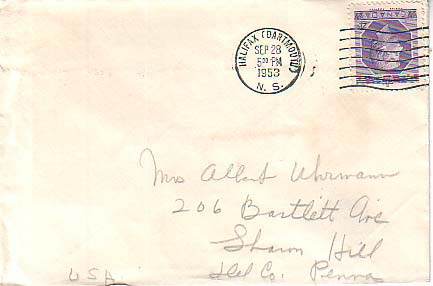 CANADA
HALIFAX (DARTMOUTH)
SEP 28
5 PM
1953
N. S.
Mrs Albert Uhrmann
206 Bartlett Ave
Sharon Hill
Del Co. Penna
USA